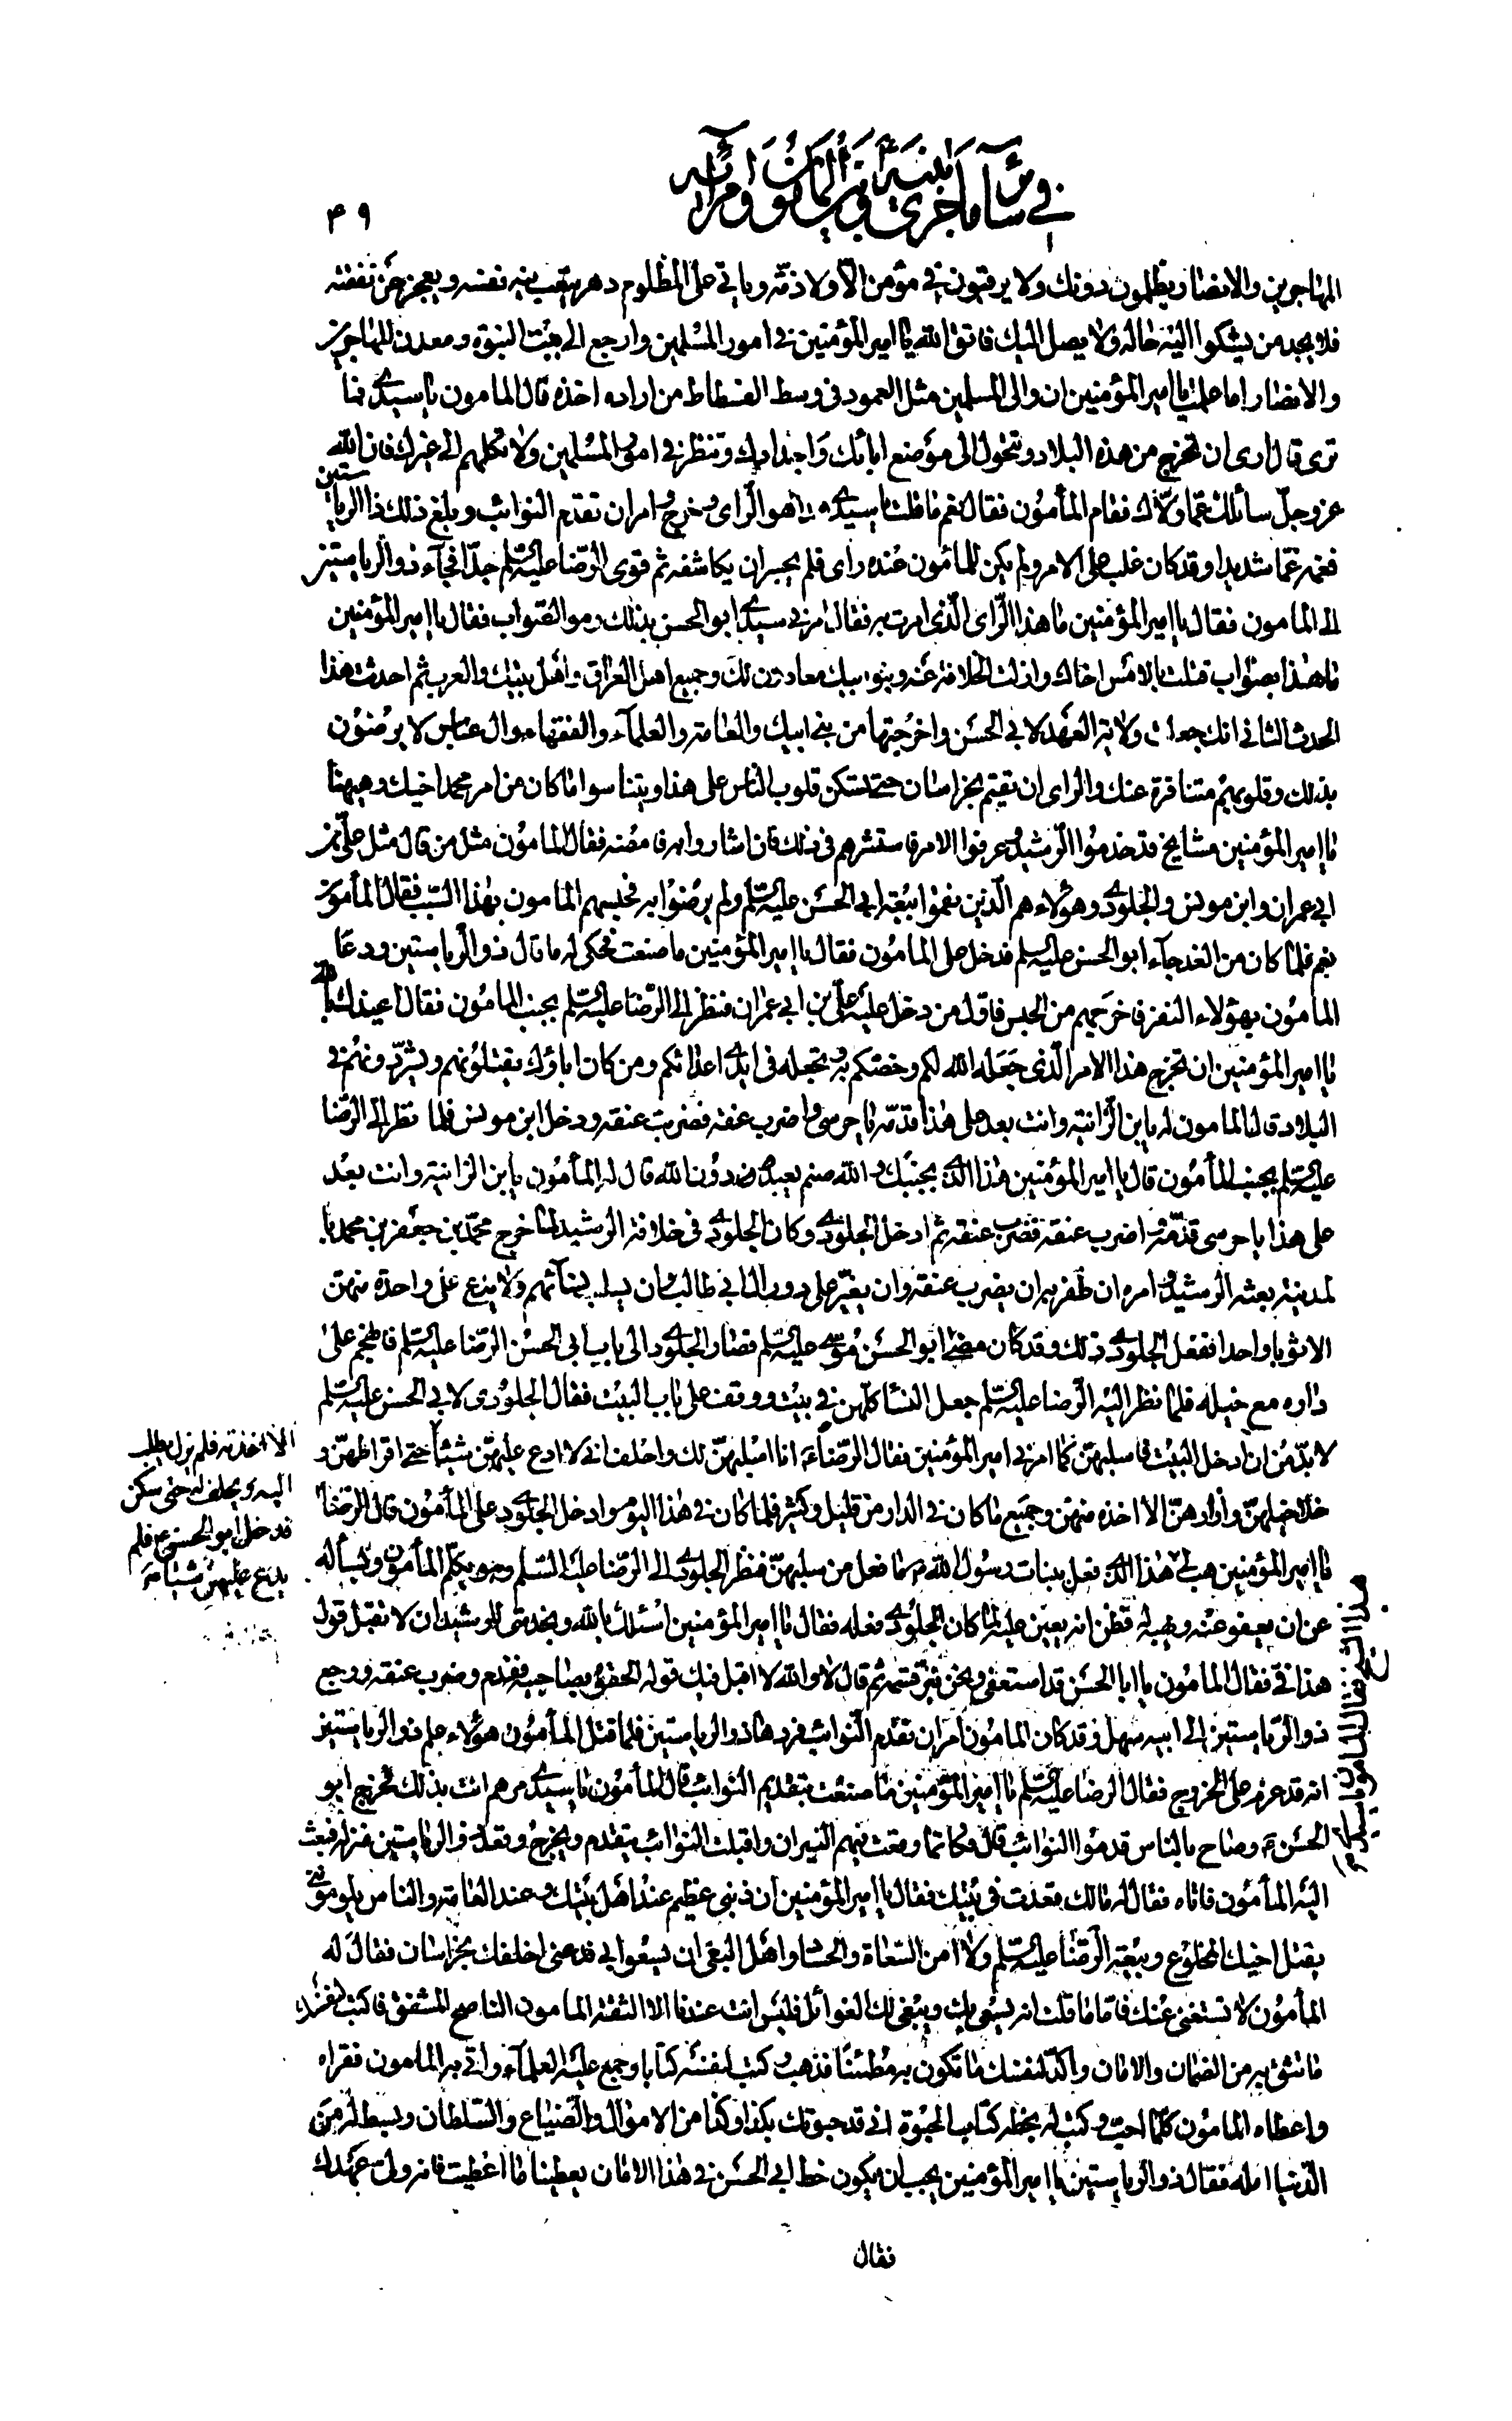 في سائر ما جرى بينه ع وبين المأمون وامرائه
٤٩
المهاجرين والانصار يظلمون دونك ولا يرقبون في مؤمن الّا ولا ذمّة ويأتي على المظلوم دهر يتعب فيه نفسه ويعجز عن نفقته
فلا يجد من يشكوا اليه حاله ولا يصل اليك فاتق الله يا امير المؤمنين في امور المسلمين وارجع الى بيت النبوة ومعدن المهاجرين
والانصار اما علمت يا امير المؤمنين ان والى المسلمين مثل العمود في وسط الفسطاط من اراده اخذه قال المامون يا سيدي فما
ترى قال ارى ان تخرج من هذه البلاد وتتحول الى موضع ابائك واجدادك وتنظر في امور المسلمين ولا تكلهم الى غيرك فان الله
عز وجلّ سائلك عمّا ولّاك فقام المأمون فقال نعم ما قلت يا سيدي هذا هو الرّاى وخرج وامر ان تقدم النوائب وبلغ ذلك ذا الرياستين
فغمه غمّا شديدا وقد كان غلب على الامر ولم يكن للمأمون عنده راى فلم يجسر ان يكاشفه ثم قوى الرّضا عليه السّلم جدّا فجآء ذو الرياستين
الى المامون فقال يا امير المؤمنين ما هذا الرّاى الّذى امرت به فقال امرني سيدي ابو الحسن بذلك وهو الصّواب فقال يا امير المؤمنين
ما هذا بصواب قتلت بالامس اخاك وازلت الخلافة عنه وبنو ابيك معادون لك وجميع اهل العراق واهل بيتك والعرب ثم احدثت هذا
الحدث الثاني انك جعلت ولاية العهد لابي الحسن واخرجتها من بني ابيك والعامة والعلمآء والفقهاء وال عباس لا يرضون
بذلك وقلوبهم متنافرة عنك والراى ان تقيم بخراسان حتى تسكن قلوب الناس على هذا ويتناسوا ما كان من امر محمد اخيك وهيهنا
يا امير المؤمنين مشايخ قد خدموا الرّشيد وعرفوا الامر فاستشرهم في ذلك فان اشاروا به فامضه فقال المامون مثل من قال مثل علي بن
ابي عمران وابن مونس والجلودي وهؤلاء هم الّذين نقموا بيعة ابي الحسن عليه السّلم ولم يرضوا به فحبسهم المامون بهذا السّبب فقال المأمون
نعم فلما كان من الغد جآء ابو الحسن عليه السلم فدخل على المامون فقال يا امير المؤمنين ما صنعت فحكى له ما قال ذو الرياستين ودعا
المأمون بهؤلاء النفر فاخرجهم من الحبس فاوّل من دخل عليه علي بن ابي عمران فنظر الى الرّضا عليه السّلم بجنب المامون فقال اعيذك بالله
يا امير المؤمنين ان تخرج هذا الامر الّذى جعله الله لكم وخصّكم به وتجعله في ايدي اعدائكم ومن كان اباؤك يقتلونهم ويشرّدونهم في
البلاد قال المامون له يا ابن الزّانية وانت بعد على هذا قدّمه يا حرسي واضرب عنقه فضربت عنقه ودخل ابن مونس فلما نظر الى الرّضا
عليه السّلم بجنب المأمون قال يا امير المؤمنين هذا الذي بجنبك والله صنم يعبد من دون الله قال له المأمون يا ابن الزانية وانت بعد
على هذا يا حرسي قدّمه واضرب عنقه فضرب عنقه ثم ادخل الجلودي وكان الجلودي في خلافة الرشيد لما خرج محمّد بن جعفر بن محمد با
لمدينة بعثه الرشيد وامره ان ظفر به ان يضرب عنقه وان يغير على دور ال ابي طالب وان يسلب نسآئهم ولا يدع على واحدة منهن
الا ثوبا واحدا ففعل الجلودي ذلك وقد كان مضى ابو الحسن موسى عليه السّلم فصار الجلودي الى باب ابي الحسن الرّضا عليه السّلم فانهجم على
داره مع خيله فلما نظر اليه الرّضا عليه السّلم جعل النسا كلّهن في بيت ووقف على باب البيت فقال الجلودي لابي الحسن عليه السّلم
لا بدّ من ان ادخل البيت فاسلبهنّ كما امرني امير المؤمنين فقال الرّضا ع انا اسلبهنّ لك واحلف اني لا ادع عليهنّ شيئا
الا اخذته فلم يزل يطلب
اليه ويحلف له حتى سكن
فدخل ابو الحسن ع فلم
يدع عليهن شيئا حتى اقراطهنّ و
خلاخيلهنّ وازارهنّ الا اخذه منهن وجميع ما كان في الدار من قليل وكثير فلما كان في هذا اليوم وادخل الجلودي على المأمون قال الرّضا
يا امير المؤمنين هب لي هذا الشيخ فقال المامون يا سيدي
هذا الذي فعل ببنات رسول الله ص ما فعل من سلبهنّ فنظر الجلودي الى الرّضا عليه السّلم وهو يكلّم المأمون ويسأله
عن ان يعفو عنه ويهبه له فظن انه يعين عليه لما كان الجلودي فعله فقال يا امير المؤمنين اسئلك بالله وبخدمتي للرشيد ان لا تقبل قول
هذا فيّ فقال المامون يا ابا الحسن قد استعفى ونحن نبرّ قسمه ثم قال لا والله لا اقبل فيك قوله الحقوه بصاحبيه فقدم وضرب عنقه ورجع
ذو الرّياستين الى ابيه سهل وقد كان المامون امر ان تقدّم النّوائب فردها ذو الرياستين فلما قتل المأمون هؤلاء علم ذو الرياستين
انه قد عزم على الخروج فقال الرضا عليه السّلم يا امير المؤمنين ما صنعت بتقديم النوائب قال المأمون يا سيدي مرهم انت بذلك فخرج ابو
الحسن ع وصاح بالناس قدموا النوائب قال فكانما وقعت فيهم النيران واقبلت النوائب يتقدم ويخرج وقعد ذو الرياستين منزله فبعث
اليه المأمون فاتاه فقال له مالك قعدت في بيتك فقال يا امير المؤمنين ان ذنبى عظيم عند اهل بيتك وعند العامة والناس يلومونني
بقتل اخيك المخلوع وبيعة الرّضا عليه السّلم ولا امن السّعاة والحساد واهل البغى ان يسعوا بي فدعنى اخلفك بخراسان فقال له
المأمون لا نستغنى عنك فاما ما قلت انه يسعى بك ويبغى لك الغوائل فليس انت عندنا الا الثقة المامون الناصح المشفق فاكتب لنفسك
ما تثق به من الضمان والامان واكّد لنفسك ما تكون به مطمئنّا فذهب وكتب لنفسه كتابا وجمع عليه العلمآء واتى به المامون فقراه
واعطاه المامون كلّما احبّ وكتب له بخطه كتاب الحبوة اني قد حبوتك بكذا وكذا من الاموال والضياع والسّلطان وبسط له من
الدّنيا امله فقال ذو الرياستين يا امير المؤمنين يجب ان يكون خط ابي الحسن في هذا الامان يعطينا ما اعطيت فانه ولي عهدك
فقال